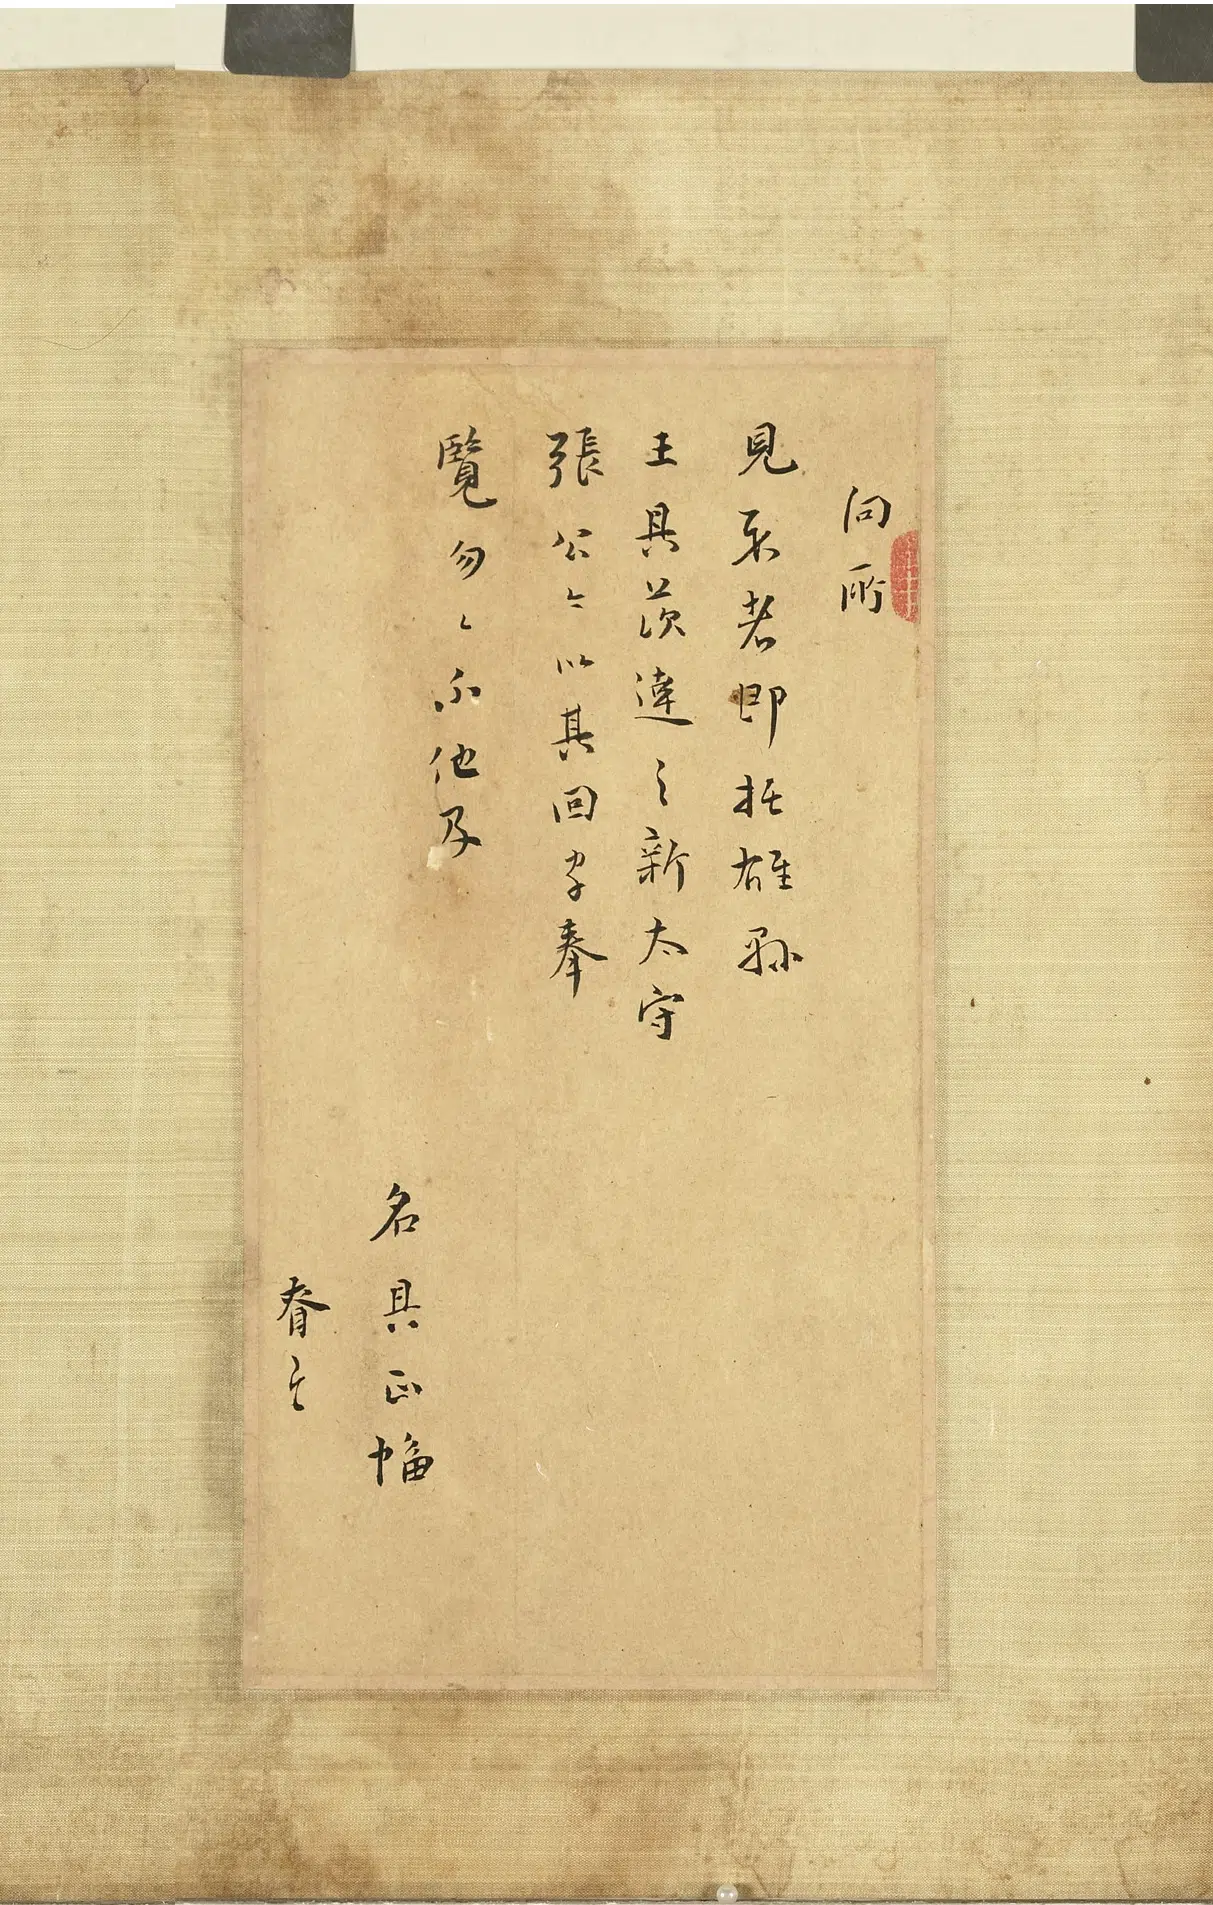 向所
見者即托雄縣
王具茨達之新太守
張公々以其回字奉
覽勿々不他及
名具正幅
之